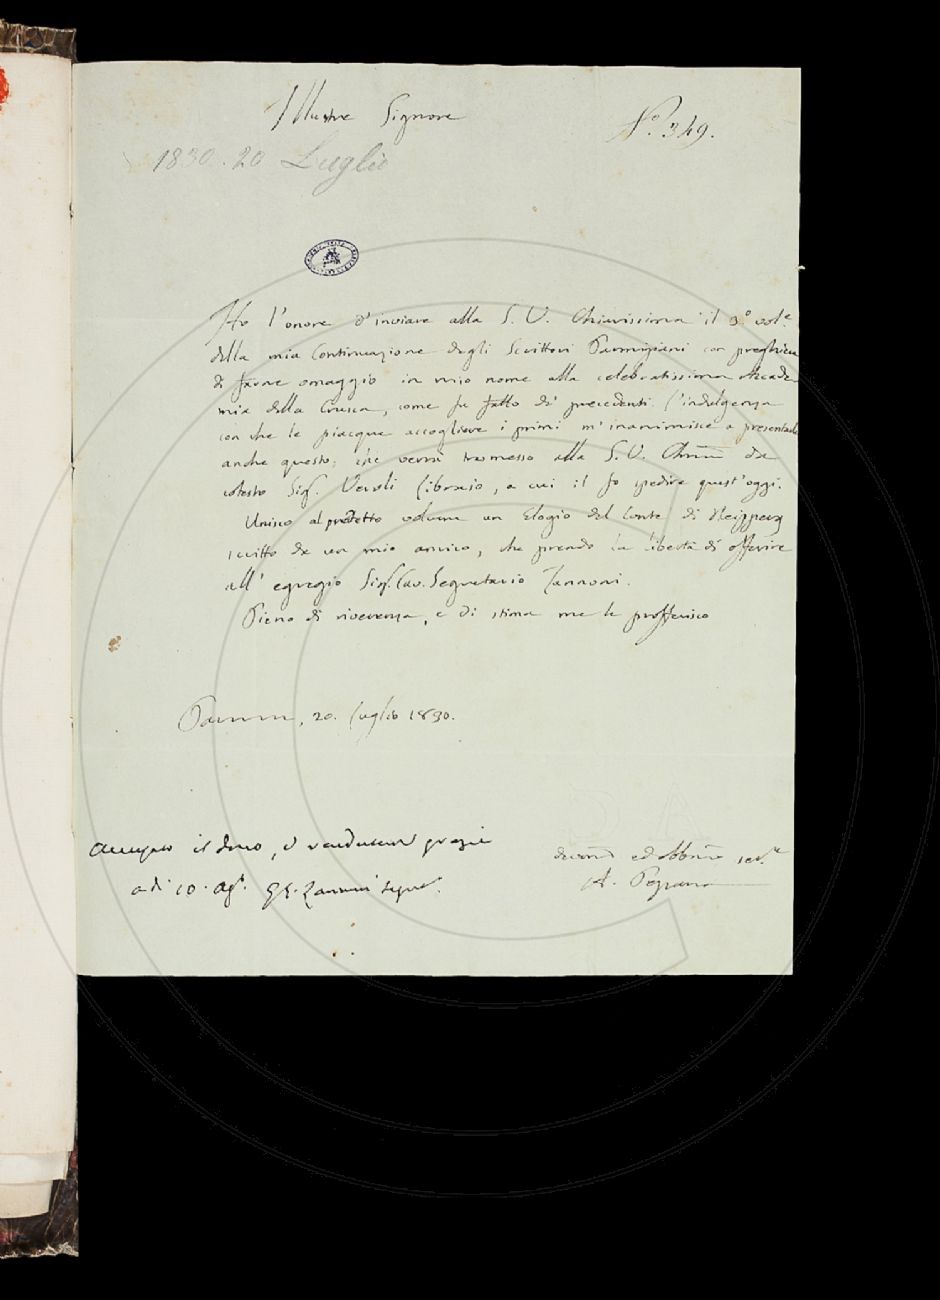 Illustre Signore
N.° 349.
1830. 20 Luglio
Ho l'onore d'inviare alla S. V. Chiarissima il 3° vol.e
della mia Continuazione degli Scrittori Parmigiani con preghiera
di farne omaggio in mio nome alla celebratissima Accade-
mia della Crusca, come fu fatto de' precedenti. L'indulgenza
con che le piacque accogliere i primi m'inanimisce a presentarle
anche questo; che verrà trasmesso alla S. V. Chma da
cotesto Sig. Veroli Libraio, a cui il fo spedire quest'oggi.
Unisco al predetto volume un Elogio del Conte di Neipperg
scritto da un mio amico, che prendo la libertà di offerire
all' egregio Sig. Cav. Segretario Zannoni.
Pieno di riverenza, e di stima me le profferisco
Parma, 20. Luglio 1830.
il dono, e rendutene grazie
a dì 10. Ag. G. B. Zannoni Segret.
ed obbmo ser.e
A. Pezzana